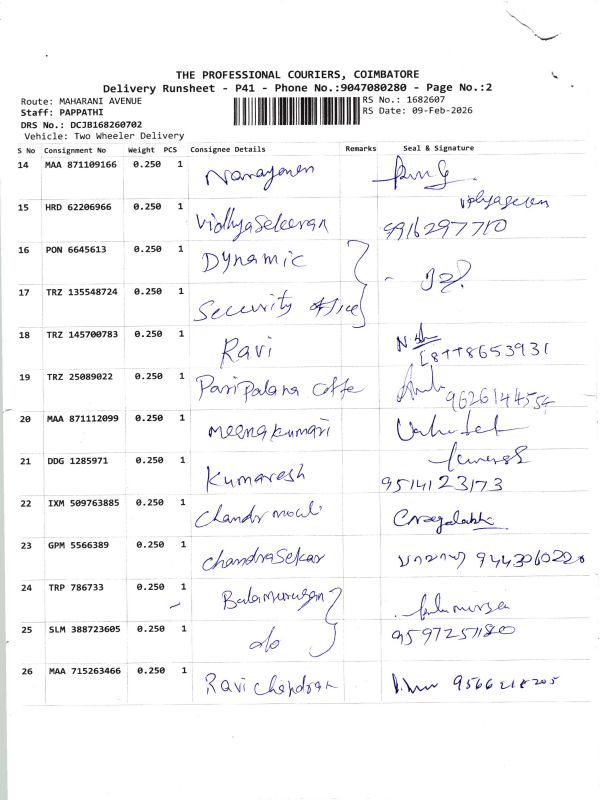 THE PROFESSIONAL COURIERS, COIMBATORE
Delivery Runsheet - P41 - Phone No.:9047080280 - Page No.:2
Route: MAHARANI AVENUE
RS No.: 1682607
Staff: PAPPATHI
RS Date: 09-Feb-2026
DRS No.: DCJB168260702
Vehicle: Two Wheeler Delivery
S No Consignment No Weight PCS Consignee Details Remarks Seal & Signature
14 MAA 871109166 0.250 1 Narayanen
15 HRD 62206966 0.250 1 Vidhyasekaran 9916297710
16 PON 6645613 0.250 1 Dynamic
17 TRZ 135548724 0.250 1 Security office
18 TRZ 145700783 0.250 1 Ravi 8778653931
19 TRZ 25089022 0.250 1 Paripalana 9626144554
20 MAA 871112099 0.250 1 meenakumari
21 DDG 1285971 0.250 1 Kumaresh 9514123173
22 IXM 509763885 0.250 1
23 GPM 5566389 0.250 1 chandrasekar
24 TRP 786733 0.250 1 Balamurugan
25 SLM 388723605 0.250 1 do 9597257180
26 MAA 715263466 0.250 1 Ravi chandran 9566218205